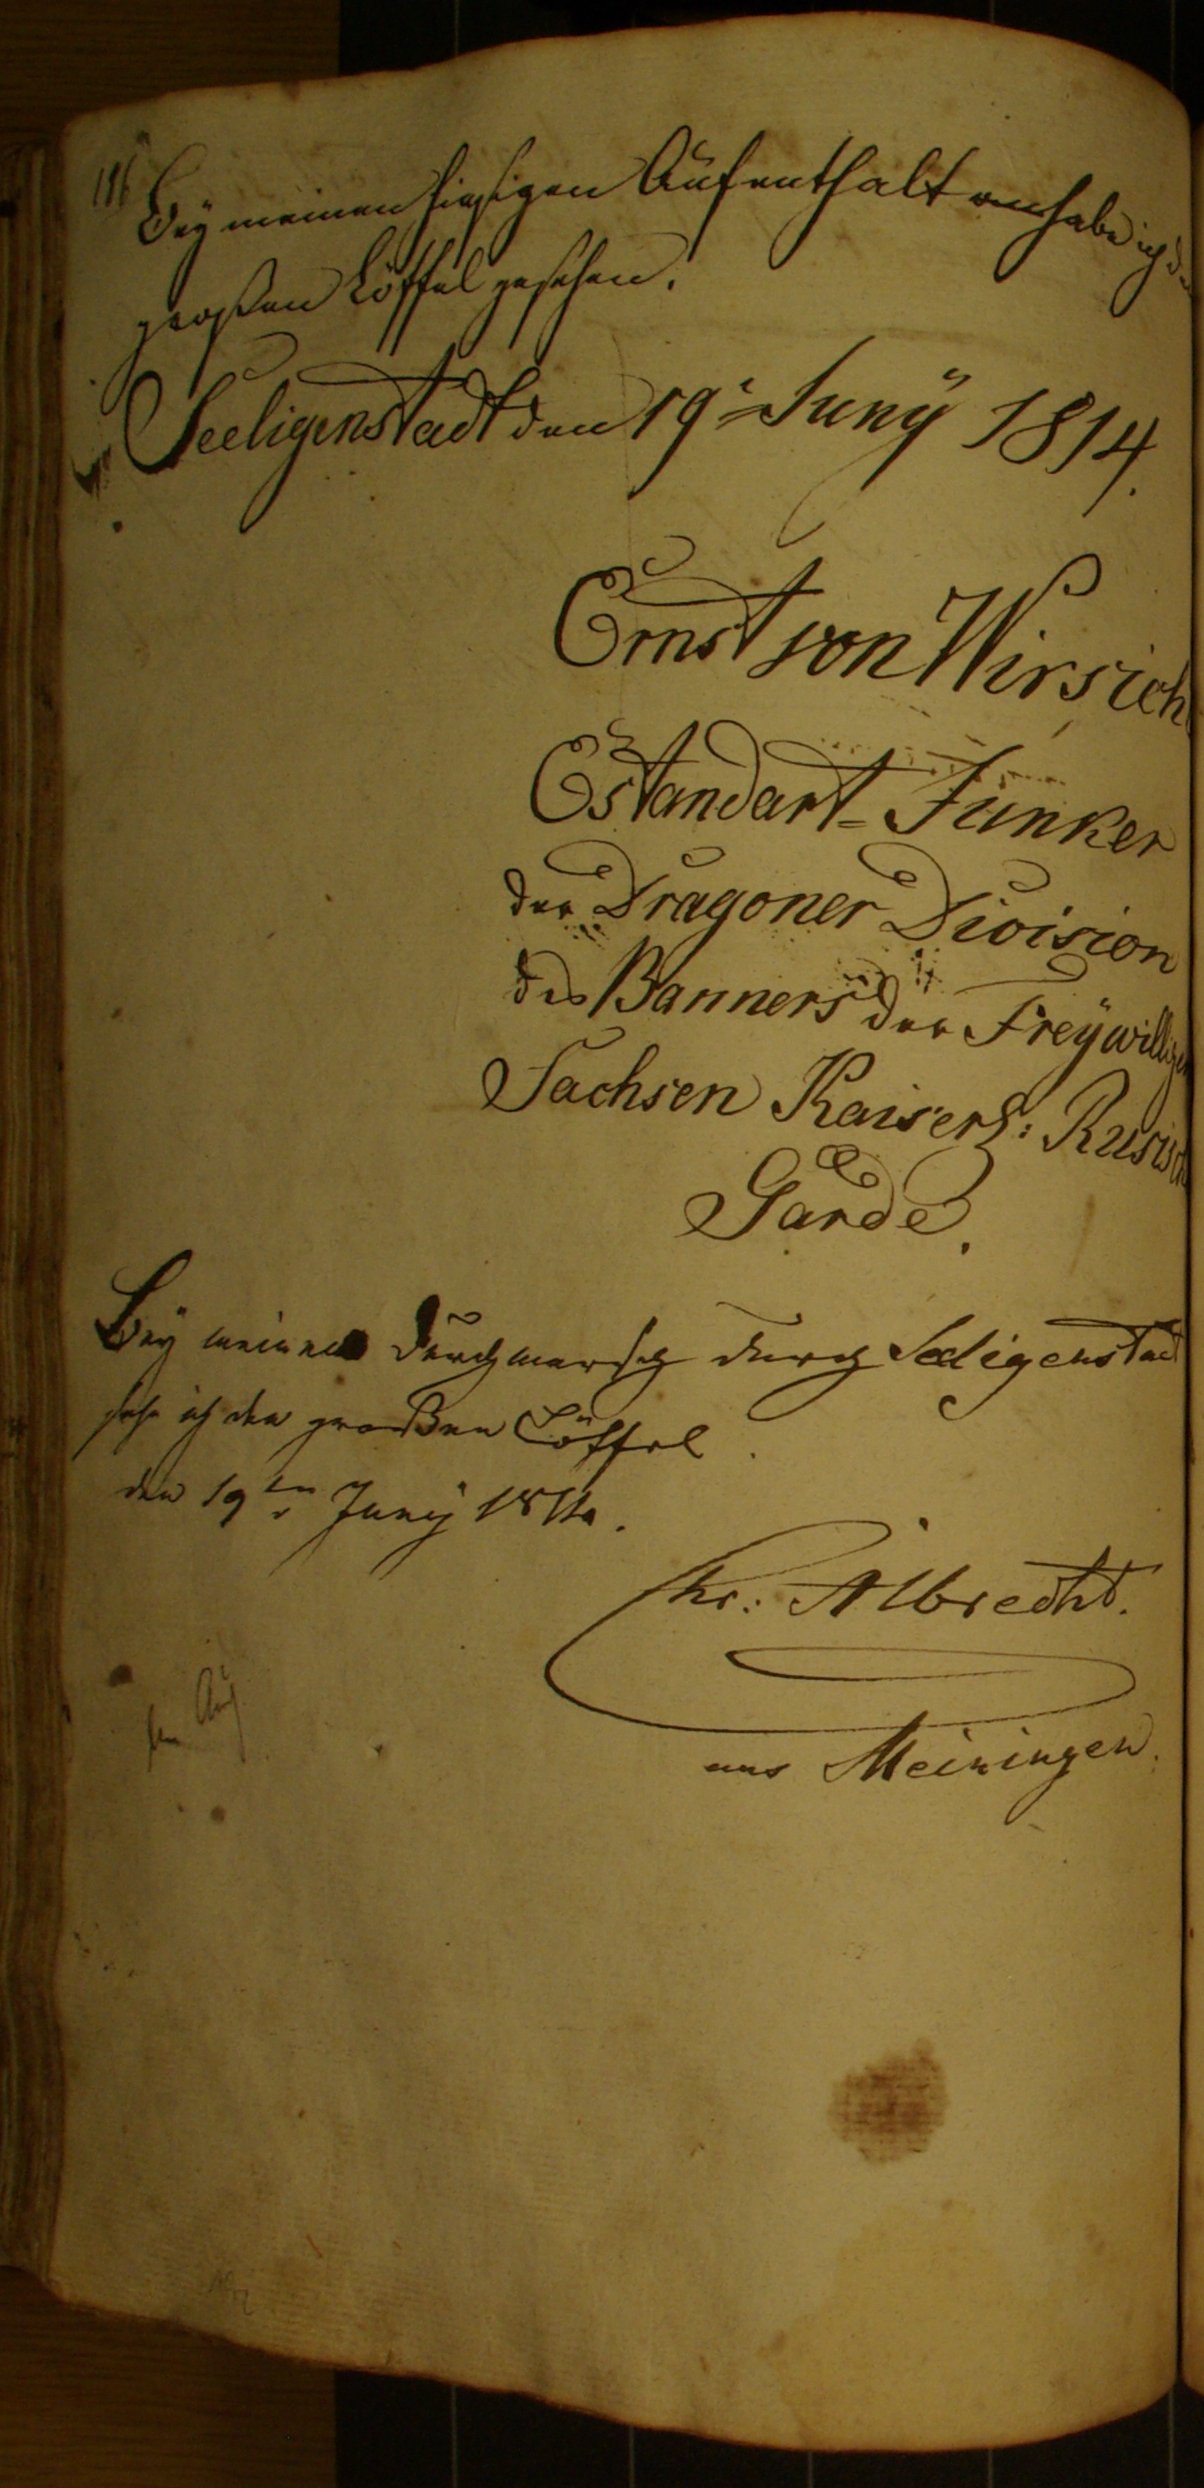 Bey meinen hiesigen Aufenthalt habe ich
großen Löffel gesehen.
Seeligenstadt den 19t Juny 1814.
Ernst von Wirsich
Estandart-Junker
der Dragoner Division
des Banners der Freywilligen
Sachsen Kaiserl: Rusisch
Garde.
Bey meinen Durchmarsch durch Seeligenstad
sahe ich den großen Löffel.
den 19ten Juny 1814.
Chr: Albrecht.
aus Meiningen.